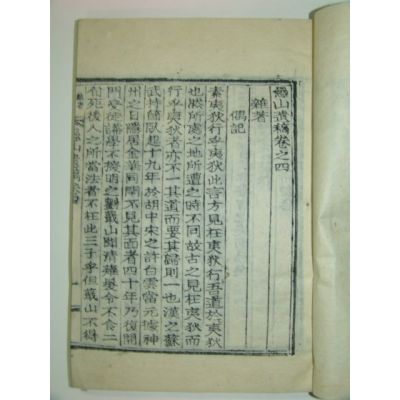 山遺稿卷之四
雜著
偶記
素夷狄行乎夷狄此言方見在夷狄行吾道於夷狄
也然所處之地所遭之時不同故古之見在夷狄而
行乎夷狄者亦不一其道而要其歸則一也漢之蘇
武持節臥起十九年於胡中宋之許白雲當元據神
州之日隱居金華其面者四十年乃復開
門受徒講學不明之劉蕺山聞清薙髮令不食二
旬死後人之所當法者不在此三子乎但蕺山不得
山遺稿卷四